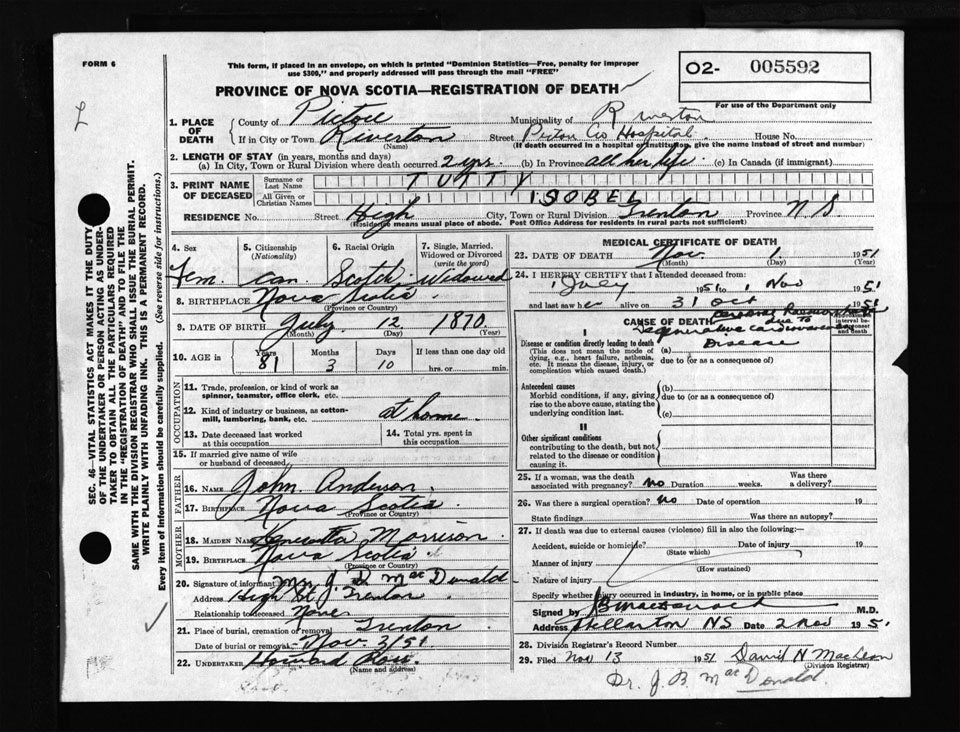 FORM 6
This form, if placed in an envelope, on which is printed "Dominion Statistics—Free, penalty for improper
use $300," and properly addressed will pass through the mail "FREE"
O2- 005592
For use of the Department only
PROVINCE OF NOVA SCOTIA—REGISTRATION OF DEATH
1. PLACE OF DEATH
County of Pictou Municipality of Riverton
If in City or Town Riverton (Name) Street Pictou Co Hospital House No.
(If death occurred in a hospital or institution, give the name instead of street and number)
2. LENGTH OF STAY (in years, months and days)
(a) In City, Town or Rural Division where death occurred 2 yrs. (b) In Province all her life. (c) In Canada (if immigrant)
3. PRINT NAME OF DECEASED
Surname or Last Name TUTTY
All Given or Christian Names ISOBEL
RESIDENCE No. Street High City, Town or Rural Division Trenton Province N.S
(Residence means usual place of abode. Post Office Address for residents in rural parts not sufficient)
4. Sex Fem.
5. Citizenship (Nationality) can
6. Racial Origin Scotch
7. Single, Married, Widowed or Divorced (write the word) Widowed
8. BIRTHPLACE Nova Scotia
(Province or Country)
9. DATE OF BIRTH July (Month) 12 (Day) 1870 (Year)
10. AGE in Years 81 Months 3 Days 10 If less than one day old hrs. or min.
OCCUPATION
11. Trade, profession, or kind of work as
spinner, teamster, office clerk, etc.
12. Kind of industry or business, as cotton-
mill, lumbering, bank, etc. at home.
13. Date deceased last worked
at this occupation
14. Total yrs. spent in
this occupation
15. If married give name of wife
or husband of deceased
FATHER
16. NAME John Anderson.
17. BIRTHPLACE Nova Scotia
(Province or Country)
MOTHER
18. MAIDEN NAME Morrison
19. BIRTHPLACE Nova Scotia
(Province or Country)
20. Signature of informant Mrs J D MacDonald
Address High St, Trenton
Relationship to deceased None
21. Place of burial, cremation or removal Trenton
Date of burial or removal Nov. 3/51
22. UNDERTAKER Howard Ross
(Name and address)
MEDICAL CERTIFICATE OF DEATH
23. DATE OF DEATH Nov (Month) 1 (Day) 1951 (Year)
24. I HEREBY CERTIFY that I attended deceased from
1 July 1951 to 1 Nov 1951
and last saw her alive on 31 Oct 1951
CAUSE OF DEATH
Approximate interval between onset and death
I
Disease or condition directly leading to death
(This does not mean the mode of
dying, e.g., heart failure, asthenia,
etc. It means the disease, injury, or
complication which caused death.)
Cerebral
due to
Degenerative cardiovascular
Disease
(a)
due to (or as a consequence of)
Antecedent causes
Morbid conditions, if any, giving
rise to the above cause, stating the
underlying condition last.
(b)
due to (or as a consequence of)
(c)
II
Other significant conditions
contributing to the death, but not
related to the disease or condition
causing it.
25. If a woman, was the death
associated with pregnancy? No Duration weeks. Was there
a delivery?
26. Was there a surgical operation? No Date of operation 19
State findings Was there an autopsy?
27. If death was due to external causes (violence) fill in also the following:—
Accident, suicide or homicide? Date of injury 19
(State which)
Manner of injury
(How sustained)
Nature of injury
Specify whether injury occurred in industry, in home, or in public place
Signed by JB MacDonald M.D.
Address Stellarton NS Date 2 Nov 1951
28. Division Registrar's Record Number
29. Filed Nov 13 1951 David N MacLean
(Division Registrar)
Dr. J. B MacDonald.
SEC. 46—VITAL STATISTICS ACT MAKES IT THE DUTY
OF THE UNDERTAKER OR PERSON ACTING AS UNDER-
TAKER TO OBTAIN ALL THE PARTICULARS REQUIRED
IN THE "REGISTRATION OF DEATH" AND TO FILE THE
SAME WITH THE DIVISION REGISTRAR WHO SHALL ISSUE THE BURIAL PERMIT.
WRITE PLAINLY WITH UNFADING INK. THIS IS A PERMANENT RECORD.
Every item of information should be carefully supplied. (See reverse side for instructions.)